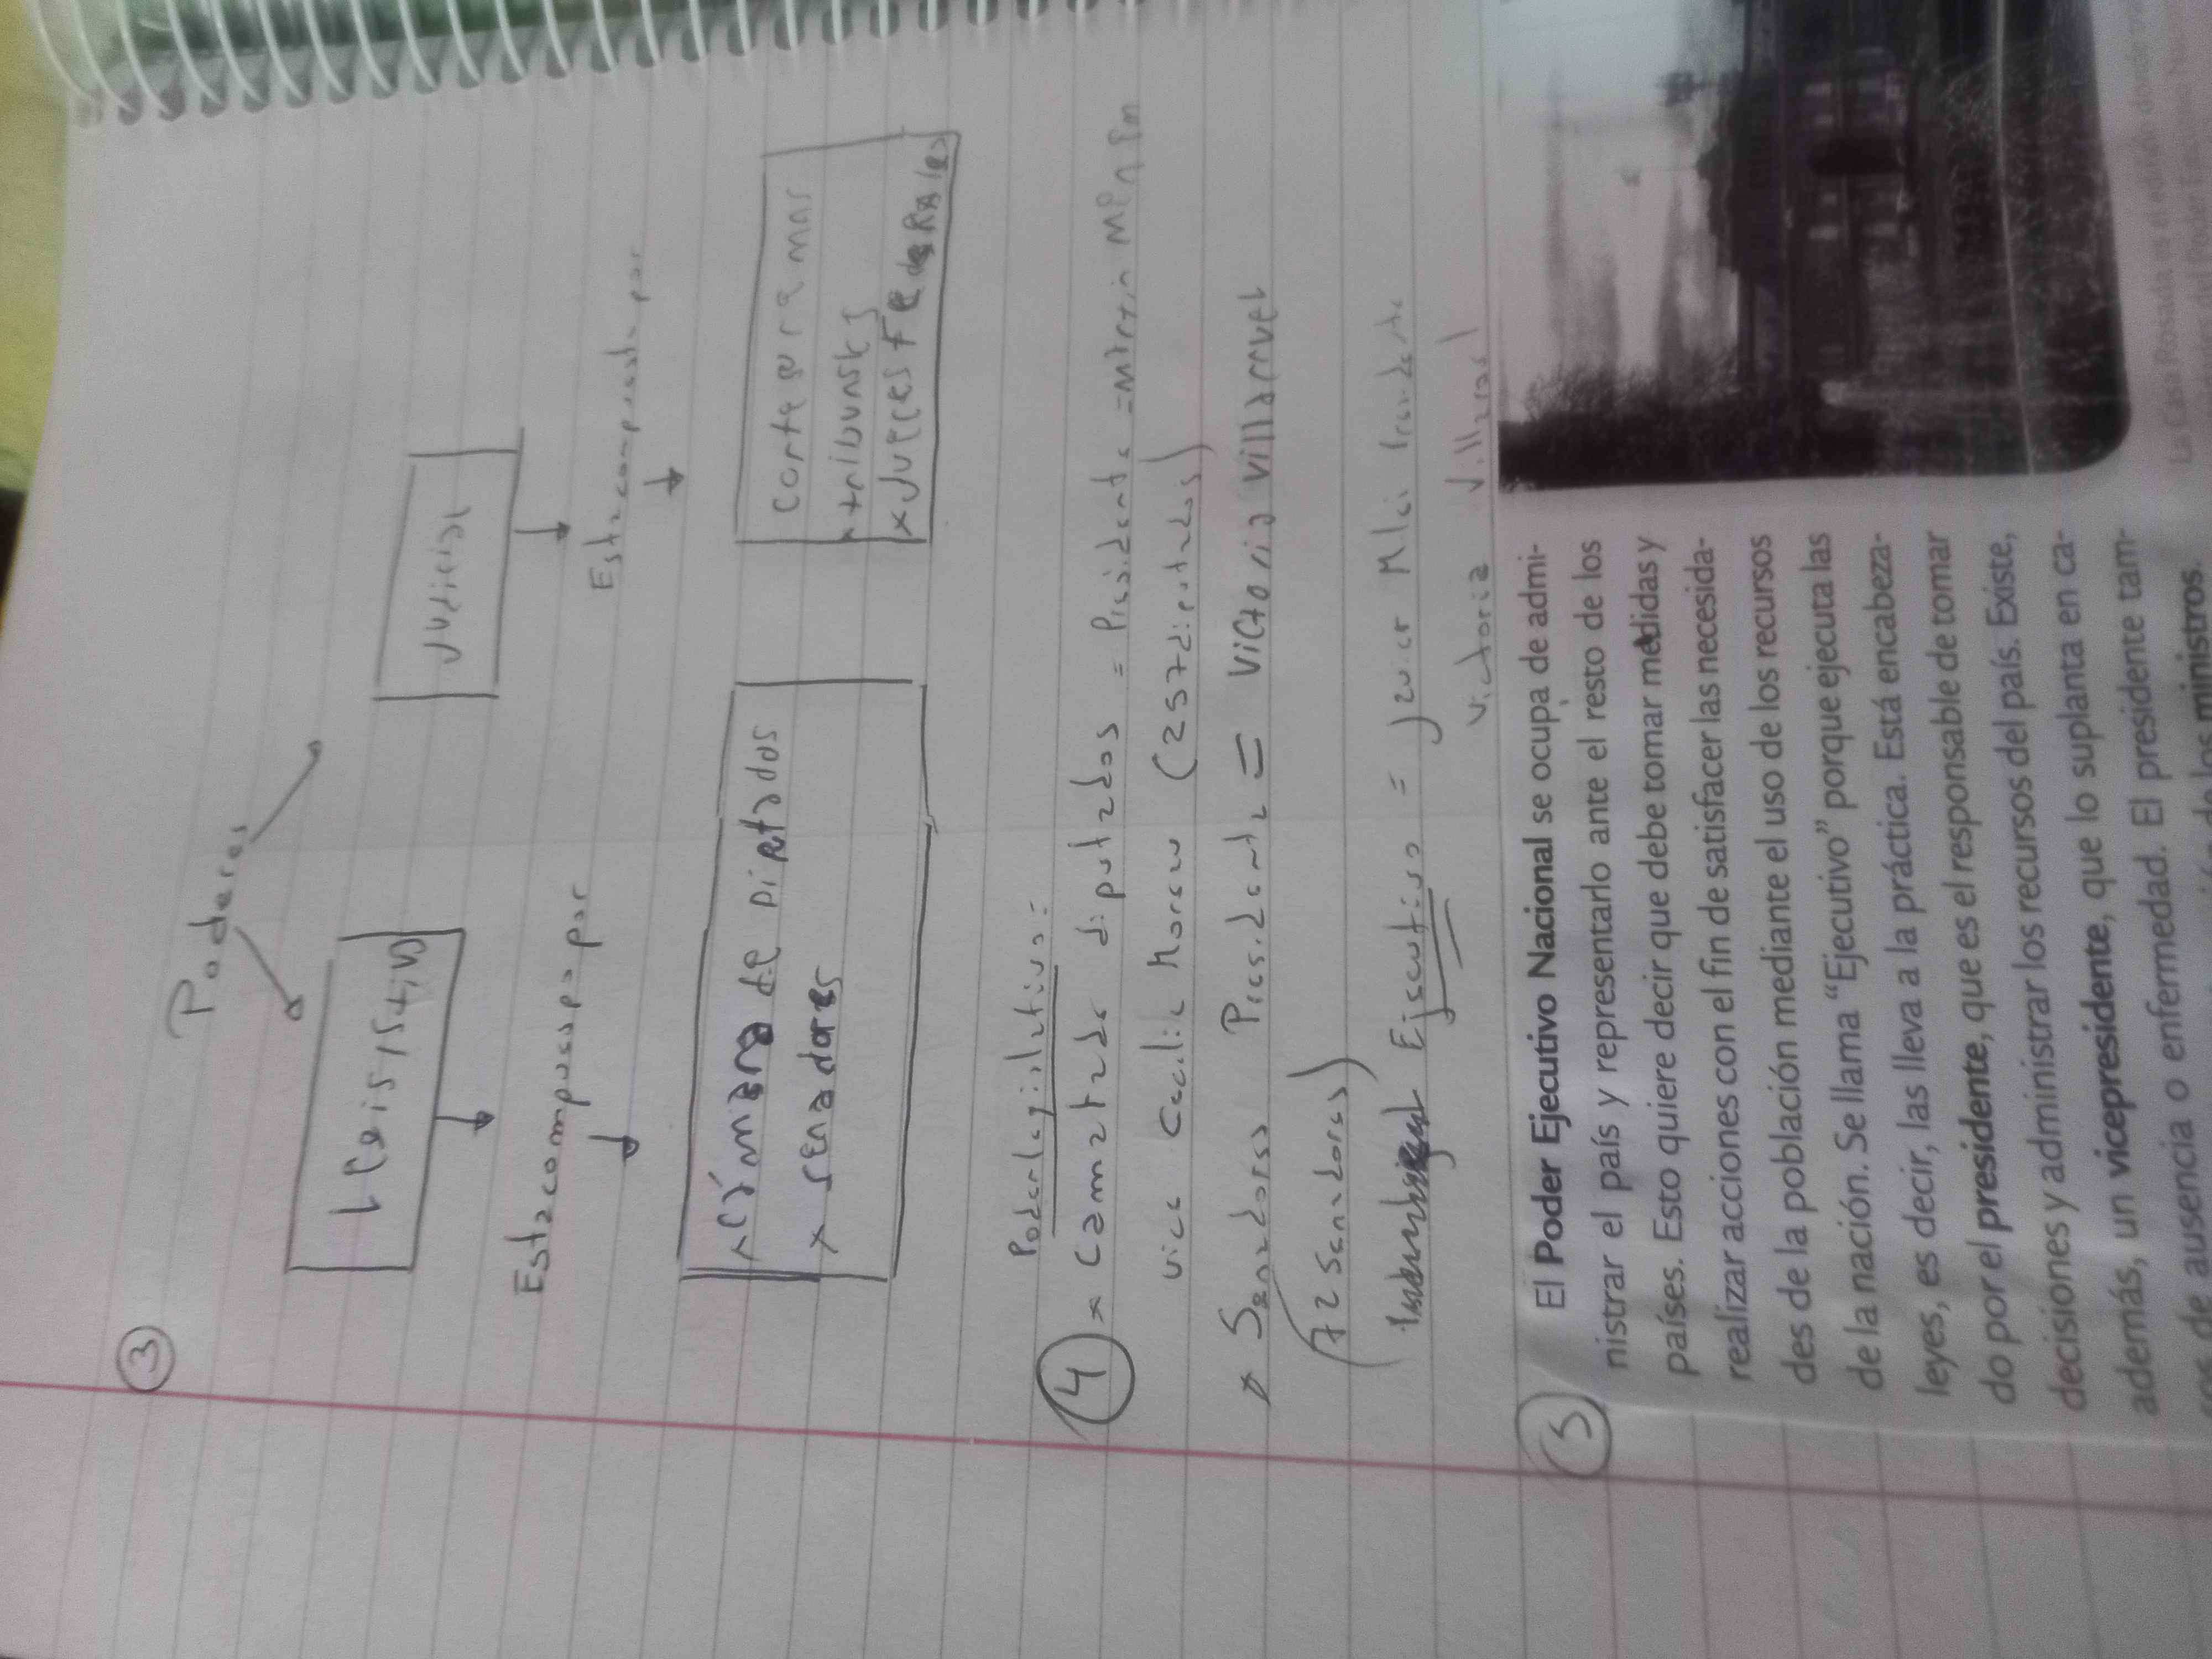 3
Poderes
Legislativo
Judicial
Esta compueso por
Esta compuesta por
x Cámara de Diputados
x senadores
Corte suprema
x tribunales
x Jueces Federales
Poder legislativo:
4 x Camara de diputados = Presidente = Martin Menem
vice Cecilia Moreau (257 diputados)
x Senadores Presidenta = Victoria Villarruel
(72 Senadores)
Ejecutivo = javier Milei
victoria
5
El Poder Ejecutivo Nacional se ocupa de admi-
nistrar el país y representarlo ante el resto de los
países. Esto quiere decir que debe tomar medidas y
realizar acciones con el fin de satisfacer las necesida-
des de la población mediante el uso de los recursos
de la nación. Se llama “Ejecutivo” porque ejecuta las
leyes, es decir, las lleva a la práctica. Está encabeza-
do por el presidente, que es el responsable de tomar
decisiones y administrar los recursos del país. Existe,
además, un vicepresidente, que lo suplanta en ca-
sos de ausencia o enfermedad. El presidente tam-
de los ministros.
La Casa Rosada es el edificio donde